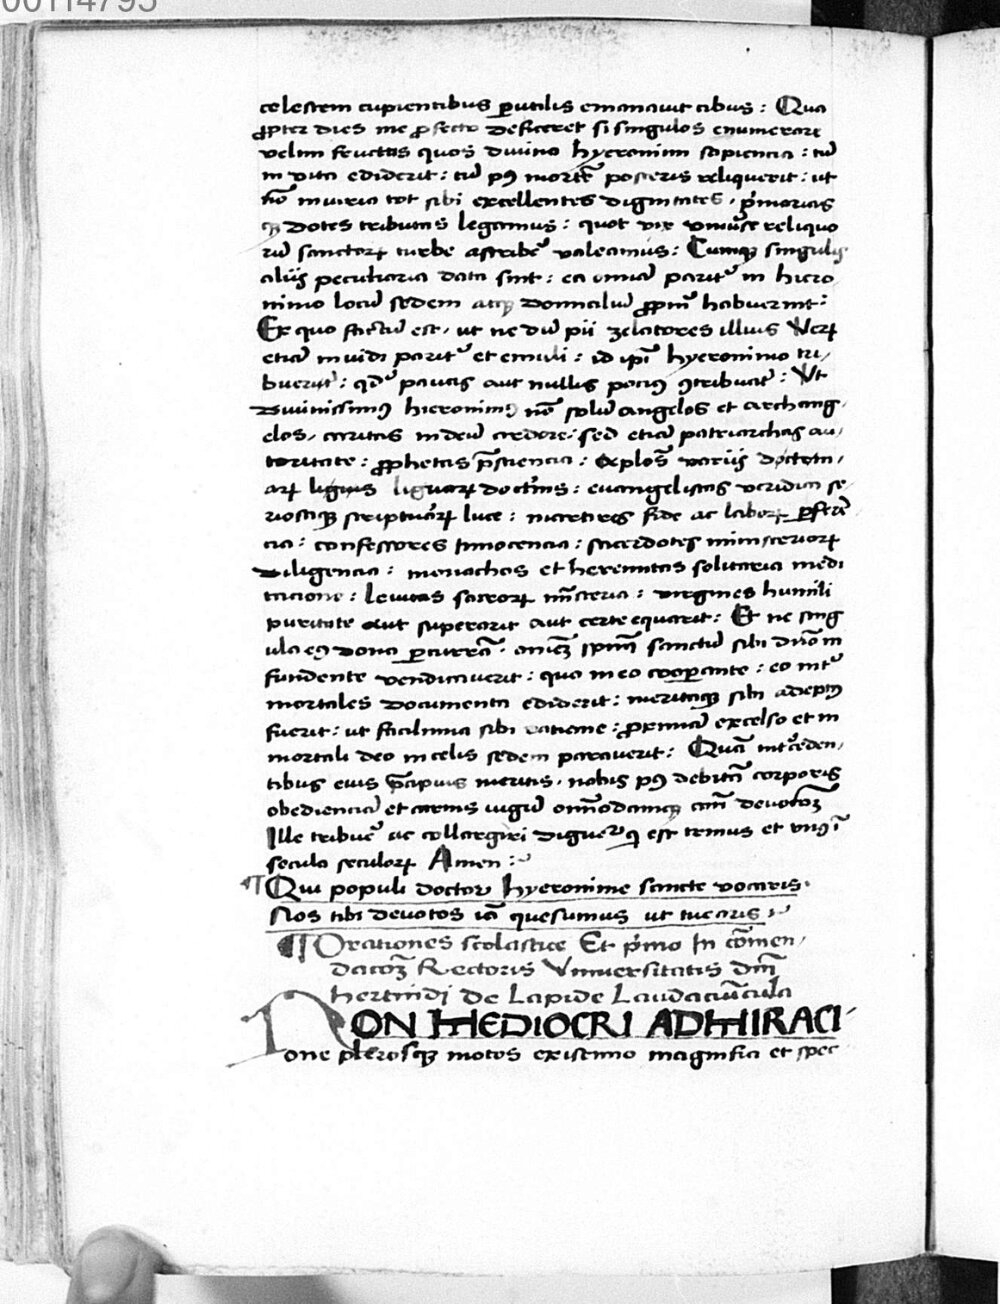 00114795
celestem cupientibus ꝑutilis emanauit cibus : Qua
ꝓpter dies me ꝓfecto deficeret si singulos enumerare
velim fructus quos diuino hyeronimi sapiencia : tū
in vita ediderit : tū pꝰ mortē posteris reliquerit : ut
nō iniuria tot sibi excellentes dignitates, p̄morias
qꝫ dotes tributas legamus : quot vix vniuse reliquo
rū sanctoꝝ turbe ascribeᷣ valeamus : Cumqꝫ singulis
aliis peculiaria data sint : ea omnia paritᷣ in hiero
nimo locū sedem atqꝫ domiciliū ꝓpriū habuerint :
Ex quo factū est, ut ne dū pii zelatores illius Veꝝ
etiā inuidi paritᷣ et emuli : id ipī hyeronimo tri/
buerūt : qdᷣ paucis aut nullis pociꝰ ꝯtribuūt : Vt
Diuinissimꝰ hieronimꝰ nō solū angelos et archang/
elos, caritas in deū ardore : sed etiā patriarchas au/
toritate : ꝓphetas p̄sciencia : aplos̄ variis
liguaꝝ doctⁱnis : euangelistas veridica se
riosaqꝫ scripturaꝝ luce : martires fide ac laboꝝ ꝑferē
cia : confessores Innocencia : sacerdotes ministerioꝝ
Diligencia : monachos et heremitas solitaria medi
tacione : Leuitas sacroꝝ mīsteria : virgines humili
puritate aut superarit aut certe equarit : Et ne sing
ula eꝰ dona ꝑcurrā, amicū spm̄ sanctū sibi dn̄o in
fundente vendicauerit : quo in eo cooꝑante : eo intᷣ
mortales documenta ediderit : meritaqꝫ sibi adeptꝰ
fuerit : ut facilima sibi ratione : ꝓximā excelso et in
mortali deo in celis sedem parauerit : Quā intᷣceden/
tibus eius p̄cipuis meritis, nobis pꝰ debitā corporis
obedienciā et carnis iugū omīodamqꝫ
Ille tribueᷣ ac collargiri digneᷣ qⁱ est trinus et vnꝰ ī
secula seculoꝝ Amen :
¶ Qui populi doctor hyeronime sancte vocaris.
Nos tibi deuotos iā quesumus ut tuearis :
¶ Orationes scolastice Et p̄mo In cōmen/
dacōꝫ Rectoris Vniuersitatis dnī
hertnidi de Lapide Laudaciūcula
NON MEDIOCRI ADMIRACI/
one plerosqꝫ motos existimo magnifica et spec